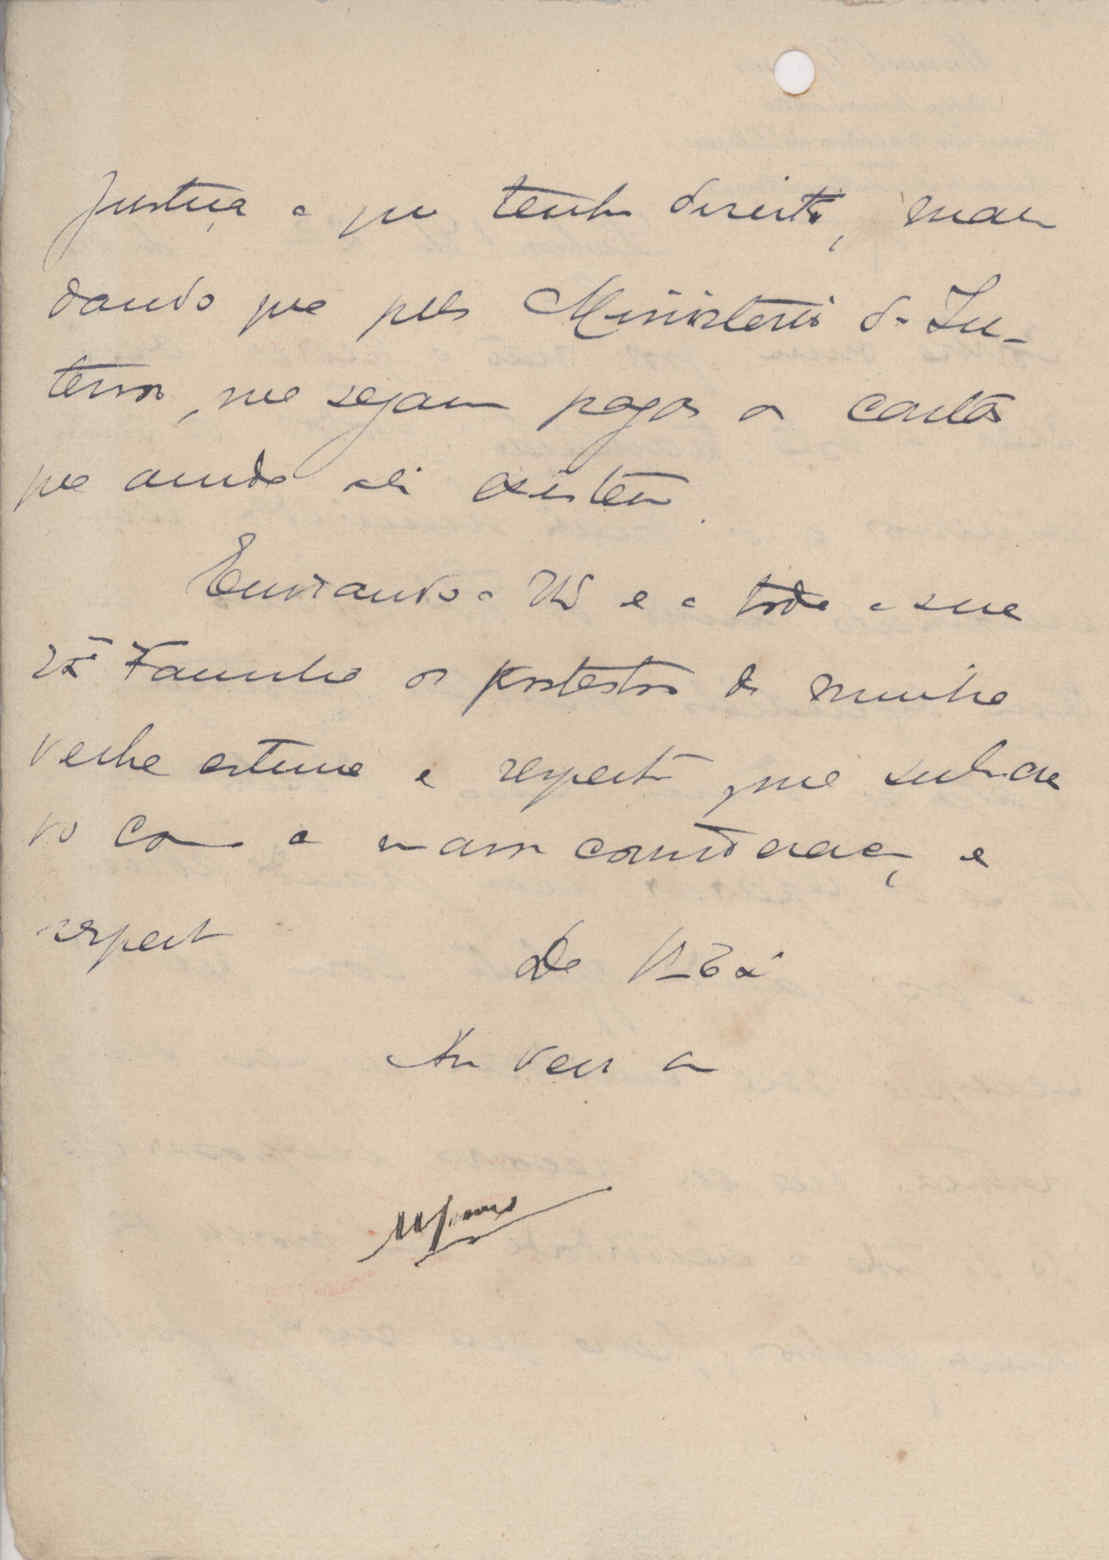 Justiça a que tenho direito, man
dando que pelo Ministerio do In-
terior, me sejam pagas as contas
que ainda ali existem.
Enviando a V. Exª e a toda a sua
Exª Familia os protestos da minha
velha estima e respeito, me subscre
vo com a maior consideração e
respeito
De V. Exª